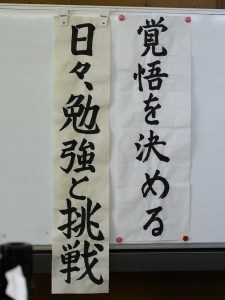 覚悟を決める
日々、勉強と挑戦